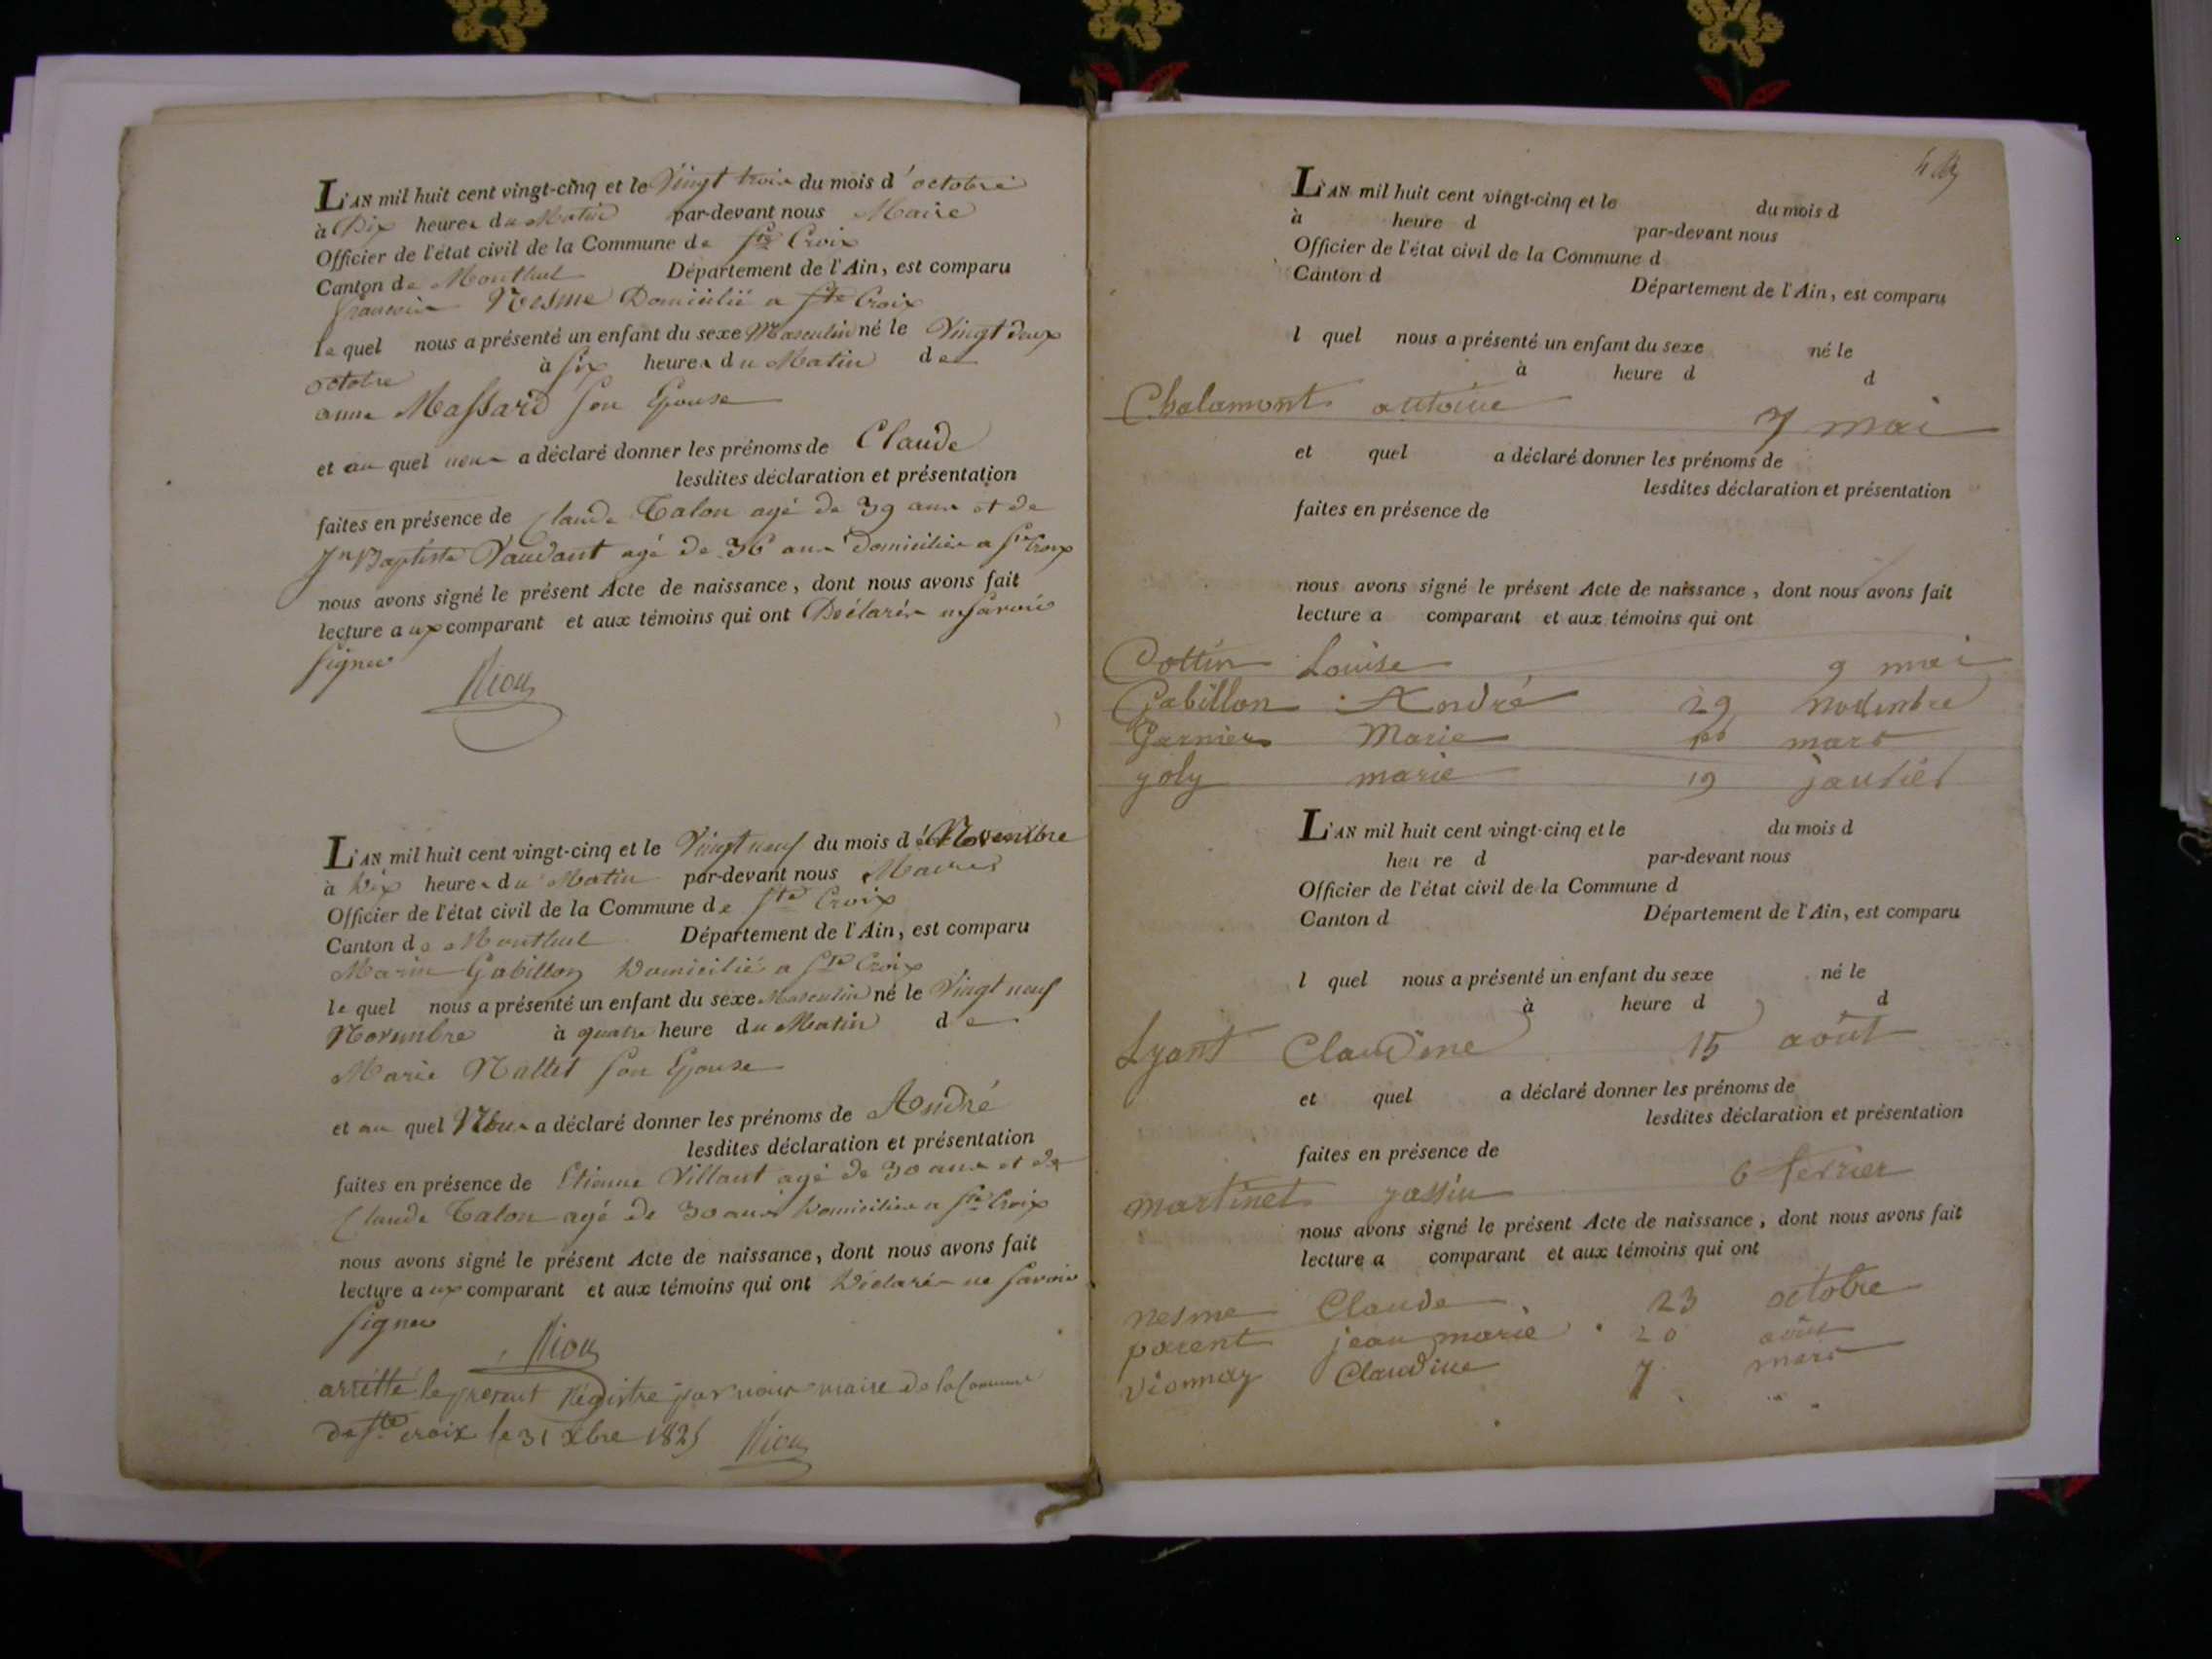 L'AN mil huit cent vingt-cinq et le Vingt trois du mois d'octobre
à Dix heures du Matin par-devant nous Maire
Officier de l'état civil de la Commune de Ste Croix
Canton de Montluel Département de l'Ain, est comparu
François Nesme Domicilié a Ste Croix
le quel nous a présenté un enfant du sexe Masculin né le Vingt deux
octobre à six heures du Matin de
anne Massard son Epouse
et au quel nous a déclaré donner les prénoms de Claude
lesdites déclaration et présentation
faites en présence de Claude Talon agé de 39 ans et de
Jn Baptiste Vaudant agé de 36 ans Domiciliés a Ste Croix
nous avons signé le présent Acte de naissance, dont nous avons fait
lecture aux comparant et aux témoins qui ont Déclarés ne savoir
signer
L'AN mil huit cent vingt-cinq et le Vingt neuf du mois de Novembre
à Dix heures du Matin par-devant nous Maire
Officier de l'état civil de la Commune de Ste Croix
Canton de Montluel Département de l'Ain, est comparu
Marin Gabillon Domicilié a Ste Croix
le quel nous a présenté un enfant du sexe Masculin né le Vingt neuf
Novembre à quatre heure du Matin de
Marie Nallet son Epouse
et au quel Nous a déclaré donner les prénoms de André
lesdites déclaration et présentation
faites en présence de Etienne Villant agé de 30 ans et de
Claude Talon agé de 30 ans Domiciliés a Ste Croix
nous avons signé le présent Acte de naissance, dont nous avons fait
lecture aux comparant et aux témoins qui ont Déclarés ne savoir
signer
arretté le present Régistre par nous maire de la Commune
de Ste croix le 31 xbre 1825
L'AN mil huit cent vingt-cinq et le du mois d
à heure d par-devant nous
Officier de l'état civil de la Commune d
Canton d Département de l'Ain, est comparu
l quel nous a présenté un enfant du sexe né le
à heure d d
Chalamont antoine 7 mai
et quel a déclaré donner les prénoms de
lesdites déclaration et présentation
faites en présence de
nous avons signé le présent Acte de naissance, dont nous avons fait
lecture a comparant et aux témoins qui ont
Cottin Louise 9 mai
Gabillon André 29 novembre
Garnier Marie mars
joly marie 19 janvier
L'AN mil huit cent vingt-cinq et le du mois d
heu re d par-devant nous
Officier de l'état civil de la Commune d
Canton d Département de l'Ain, est comparu
l quel nous a présenté un enfant du sexe né le
à heure d d
Lyant Claudine 15 août
et quel a déclaré donner les prénoms de
lesdites déclaration et présentation
faites en présence de
martinet 6 fevrier
nous avons signé le présent Acte de naissance, dont nous avons fait
lecture a comparant et aux témoins qui ont
nesme Claude 23 octobre
parent jean marie 20 août
vionnay Claudine 7 mars